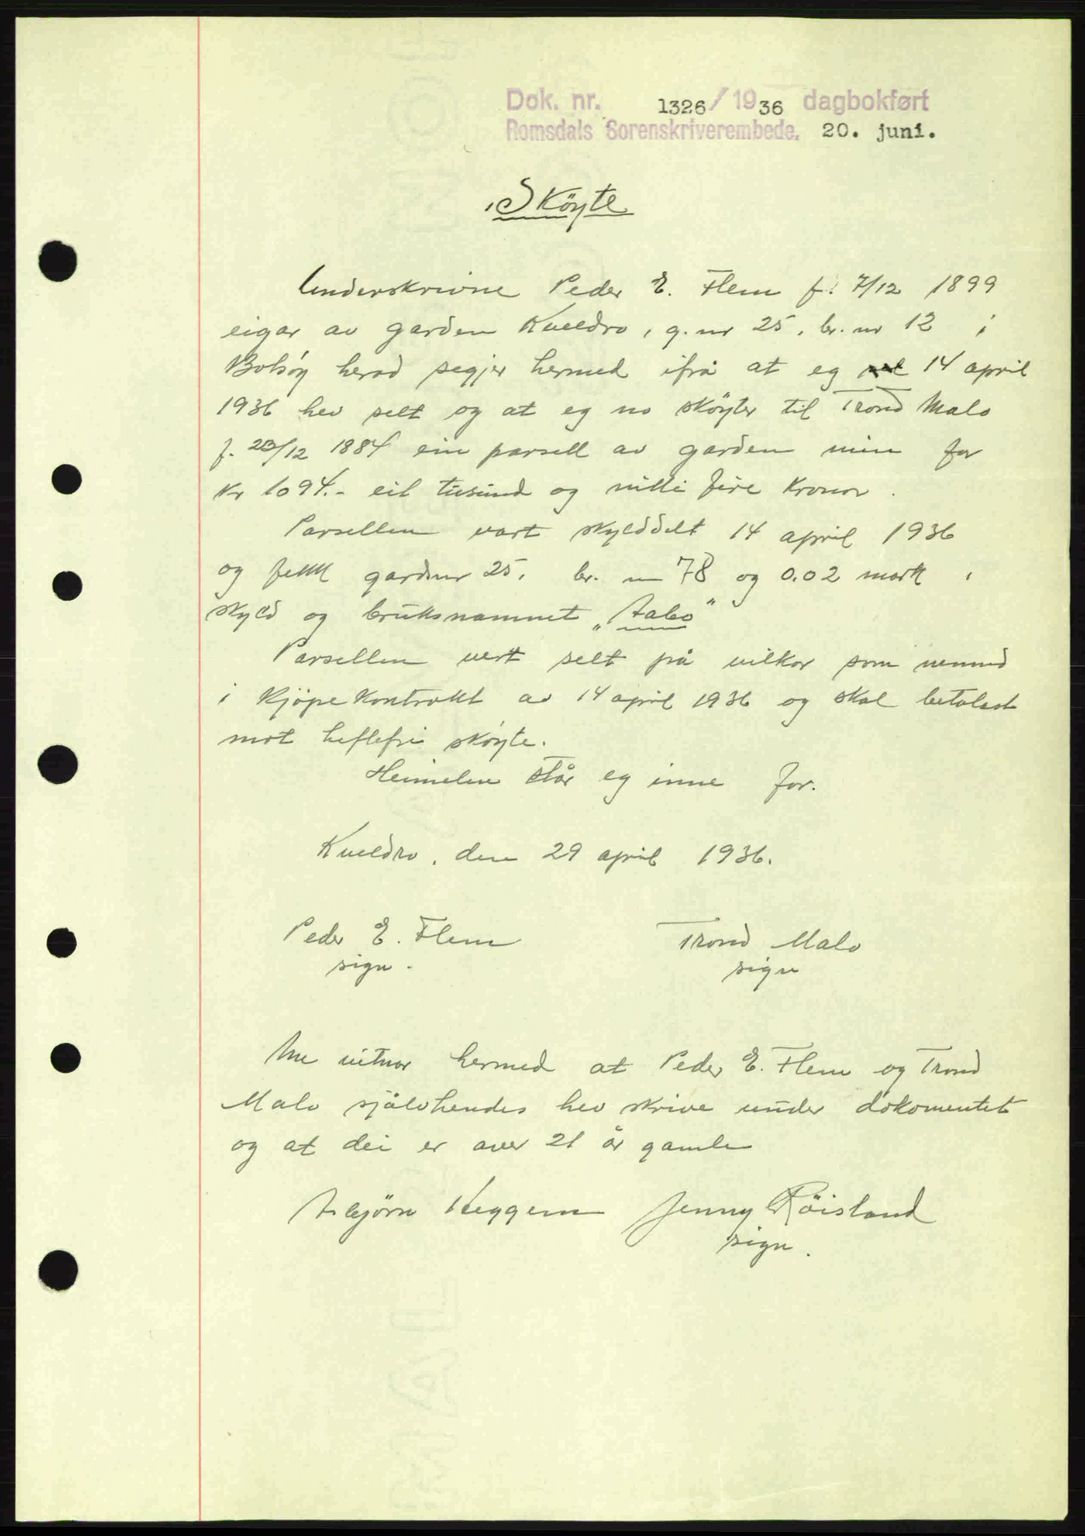 Dok. nr. 1326/1936 dagbokført
Romsdals Sorenskriverembede. 20. juni.
Sköyte
Underskrivne Peder E. Flem f. 7/12 1899
eigar av garden Kveldro, g. nr 25, br. nr 12 i
Bolsöy herad segjer hermed ifrå at eg 14 april
1936 hev selt og at eg no sköyter til Trond Malo
f. 23/12 1884 ein parsell av garden min for
kr 1094.- eit tusund og nitti fire kronor.
Parsellen vart skylddelt 14 april 1936
og fekk gardsnr 25, br. nr 78 og 0.02 mark i
skyld og bruksnamnet „Aabo"
Parsellen vert selt på vilkor som nemnd
i kjöpekontrakt av 14 april 1936 og skal betalast
mot heftefri sköyte.
Heimelen står eg inne for.
Kveldro, den 29 april 1936.
Peder E. Flem Trond Malo
sign. sign
Me vitnar hermed at Peder E. Flem og Trond
Malo sjålvhendes hev skrive under dokumentet
og at dei er over 21 år gamle
Asbjörn Heggem Jenny Röisland
sign.